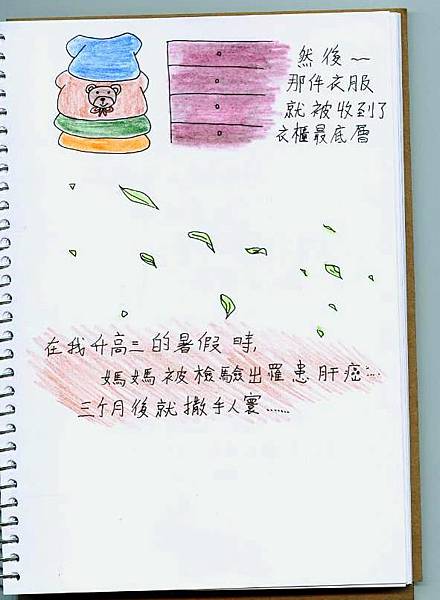 然後~
那件衣服
就被收到了
衣櫃最底層
在我升高三的暑假時,
媽媽被檢驗出罹患肝癌…
三個月後就撒手人寰……